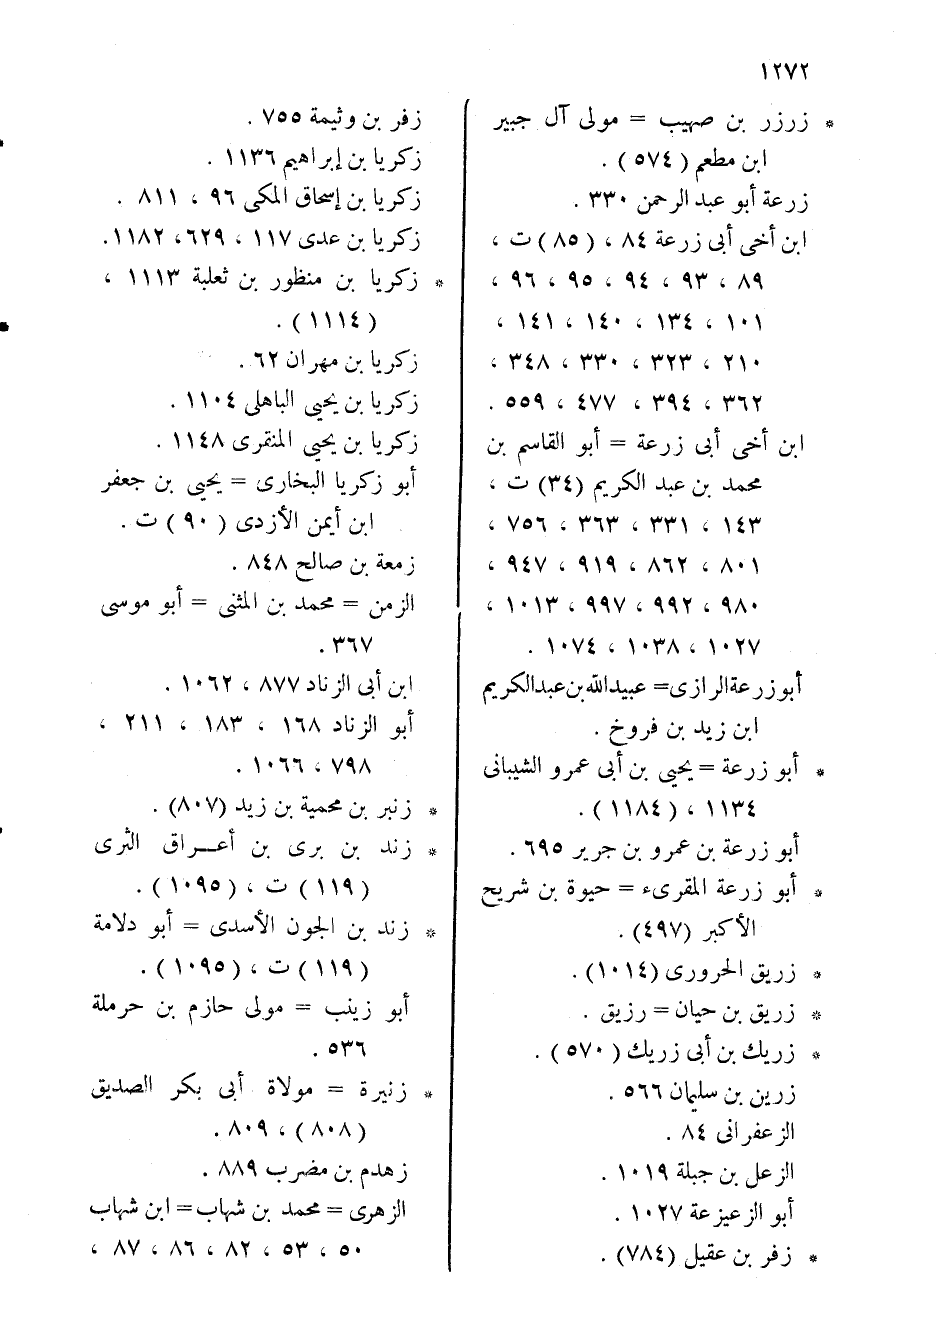 ١٢٧٢
* زرزر بن صهيب = مولى آل جبير
ابن مطعم ( ٥٧٤ ) .
زرعة أبو عبد الرحمن ٣٣٠ .
ابن أخى أبى زرعة ٨٤ ، ( ٨٥ ) ت ،
٨٩ ، ٩٣ ، ٩٤ ، ٩٥ ، ٩٦ ،
١٠١ ، ١٣٤ ، ١٤٠ ، ١٤١ ،
٢١٠ ، ٣٢٣ ، ٣٣٠ ، ٣٤٨ ،
٣٦٢ ، ٣٩٤ ، ٤٧٧ ، ٥٥٩ .
ابن أخى أبى زرعة = أبو القاسم بن
محمد بن عبد الكريم (٣٤) ت ،
١٤٣ ، ٣٣١ ، ٣٦٣ ، ٧٥٦ ،
٨٠١ ، ٨٦٢ ، ٩١٩ ، ٩٤٧ ،
٩٨٠ ، ٩٩٢ ، ٩٩٧ ، ١٠١٣ ،
١٠٢٧ ، ١٠٣٨ ، ١٠٧٤ .
أبو زرعة الرازى = عبيد الله بن عبد الكريم
ابن زيد بن فروخ .
* أبو زرعة = يحيى بن أبى عمرو الشيبانى
١١٣٤ ، ( ١١٨٤ ) .
أبو زرعة بن عمرو بن جرير ٦٩٥ .
* أبو زرعة المقرىء = حيوة بن شريح
الأكبر (٤٩٧) .
* زريق الحرورى (١٠١٤) .
* زريق بن حيان = رزيق .
* زريك بن أبى زريك ( ٥٧٠ ) .
زرين بن سليمان ٥٦٦ .
الزعفرانى ٨٤ .
الزعل بن جبلة ١٠١٩ .
أبو الزعيزعة ١٠٢٧ .
* زفر بن عقيل (٧٨٤) .
زفر بن وثيمة ٧٥٥ .
زكريا بن إبراهيم ١١٣٦ .
زكريا بن إسحاق المكى ٩٦ ، ٨١١ .
زكريا بن عدى ١١٧ ، ٦٢٩ ، ١١٨٢ .
* زكريا بن منظور بن ثعلبة ١١١٣ ،
( ١١١٤ ) .
زكريا بن مهران ٦٢ .
زكريا بن يحيى الباهلى ١١٠٤ .
زكريا بن يحيى المنقرى ١١٤٨ .
أبو زكريا البخارى = يحيى بن جعفر
ابن أيمن الأزدى ( ٩٠ ) ت .
زمعة بن صالح ٨٤٨ .
الزمن = محمد بن المثنى = أبو موسى
٣٦٧ .
ابن أبى الزناد ٨٧٧ ، ١٠٦٢ .
أبو الزناد ١٦٨ ، ١٨٣ ، ٢١١ ،
٧٩٨ ، ١٠٦٦ .
* زنبر بن محمية بن زيد (٨٠٧) .
* زند بن برى بن أعـراق الثرى
( ١١٩ ) ت ، ( ١٠٩٥ ) .
* زند بن الجون الأسدى = أبو دلامة
( ١١٩ ) ت ، ( ١٠٩٥ ) .
أبو زينب = مولى حازم بن حرملة
٥٣٦ .
* زنيرة = مولاة أبى بكر الصديق
( ٨٠٨ ) ، ٨٠٩ .
زهدم بن مضرب ٨٨٩ .
الزهرى = محمد بن شهاب = ابن شهاب
٥٠ ، ٥٣ ، ٨٢ ، ٨٦ ، ٨٧ ،